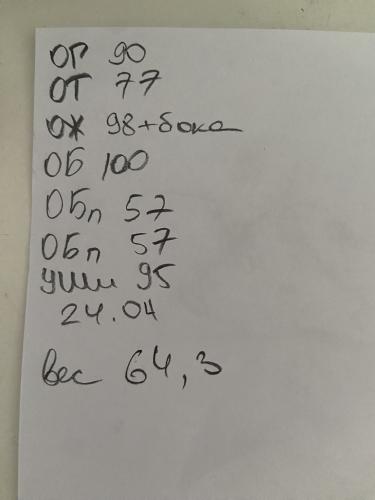 ОГ 90
ОТ 77
ОЖ 98+бока
ОБ 100
ОБп 57
ОБп 57
уши 95
24.04
Вес 64,3